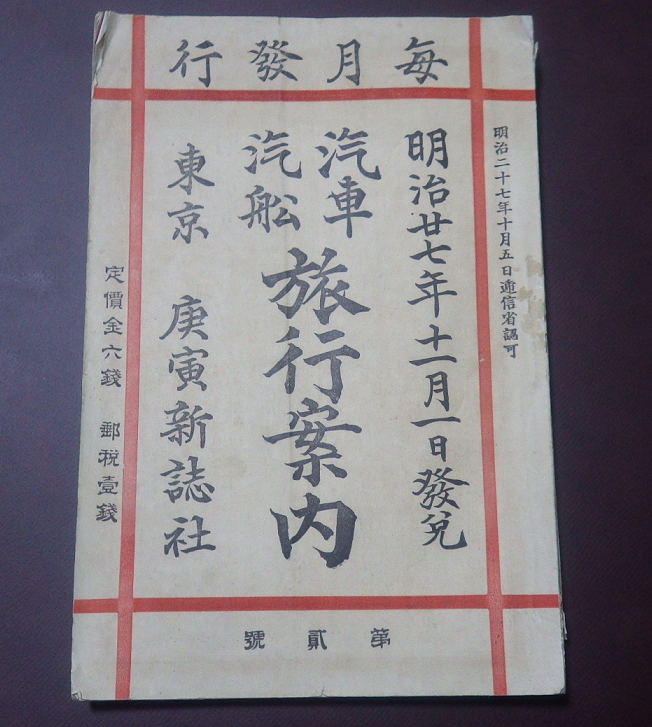 毎月發行
明治二十七年十月五日遞信省認可
明治廿七年十一月一日發兌
汽車
汽船
旅行案内
東京 庚寅新誌社
定價金六錢 郵税壹錢
第貳號